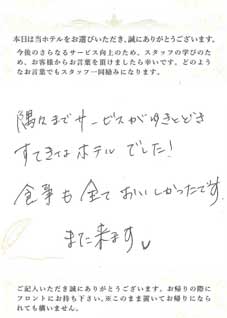 本日は当ホテルをお選びいただき、誠にありがとうございます。
今後のさらなるサービス向上のため、スタッフの学びのため、お客様からお言葉を頂けましたら幸いです。どのようなお言葉でもスタッフ一同励みになります。
隅々までサービスがゆきとどき
すてきなホテルでした!
食事も全ておいしかったです。
また来ます
ご記入いただき誠にありがとうございます。お帰りの際に
フロントにお持ち下さい。※このまま置いてお帰りになら
れても構いません。